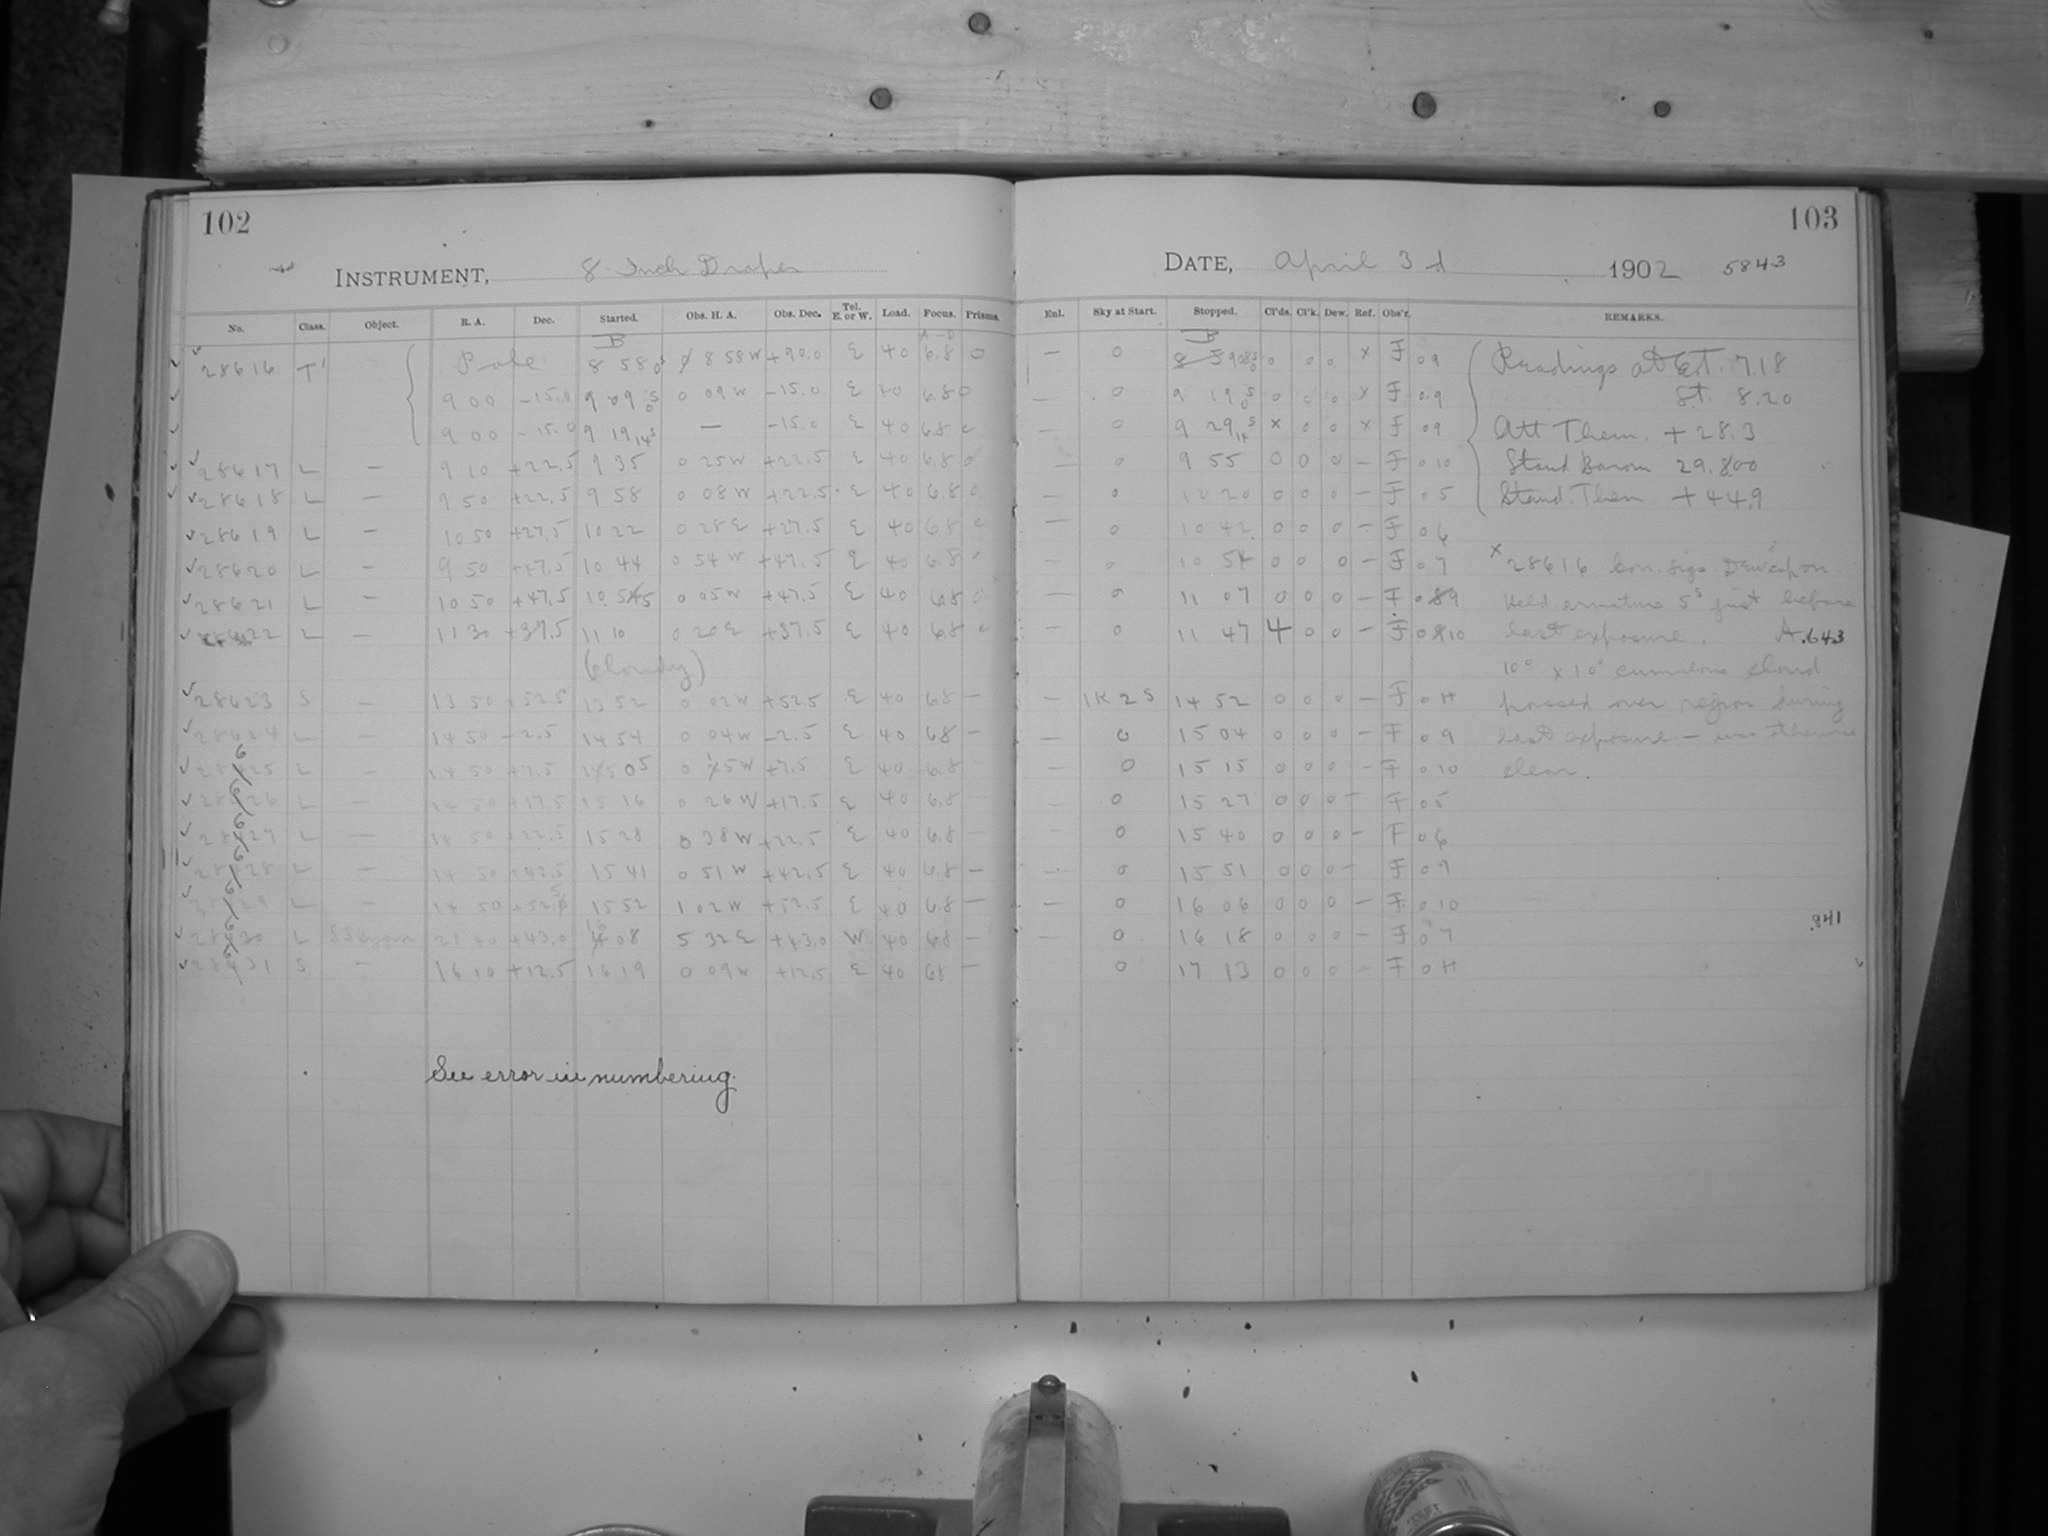 102
INSTRUMENT, 8 Inch Draper
No. Class. Object. R. A. Dec. Started. Obs. H. A. Obs. Dec. Tel. E. or W. Load. Focus. Prisms.
28616 T' Pole 8 58 8 58 W +90.0 E 40 6.8 0
9 00 -15.0 9 09 0 09 W -15.0 E 40 6.8 0
9 00 -15.0 9 19 — -15.0 E 40 6.8
28617 L — 9 10 +22.5 9 35 0 25 W +22.5 E 40 6.8 0
28618 L — 9 50 +22.5 9 58 0 08 W +22.5 E 40 6.8 0
28619 L — 10 50 +27.5 10 22 0 28 E +27.5 E 40 6.8
28620 L — 9 50 +47.5 10 44 0 54 W +47.5 E 40 6.8
28621 L — 10 50 +47.5 10 55 0 05 W +47.5 E 40 6.8 0
22 L — 11 30 +37.5 11 10 0 20 E +37.5 E 40 6.8
(Cloudy)
28623 S — 13 50 +52.5 13 52 0 02 W +52.5 E 40 6.8 —
L — 14 50 -2.5 14 54 0 04 W -2.5 E 40 6.8 —
L — 14 50 +7.5 15 05 0 15 W +7.5 E 40 6.8
L — 14 50 +17.5 15 16 0 26 W +17.5 E 40 6.8 —
L — 14 50 +22.5 15 28 0 38 W +22.5 E 40 6.8 —
L — 14 50 +42.5 15 41 0 51 W +42.5 E 40 6.8 —
L — 14 50 +52.5 15 52 1 02 W +52.5 E 40 6.8 —
L SS Cygni 21 40 +43.0 16 08 5 32 E +43.0 W 40 6.8 —
S — 16 10 +12.5 16 19 0 09 W +12.5 E 40 6.8 —
See error in numbering.
103
DATE, April 3d 1902 5843
Enl. Sky at Start. Stopped. Cl'ds. Cl'k. Dew. Ref. Obs'r. REMARKS.
— 0 8 59 0 0 0 x F 09 Readings at Ext. 7.18
— 0 9 19 0 0 0 x F 09 St. 8.20
0 9 29 x 0 0 x F 09 Att Them. + 28.3
— 0 9 55 0 0 0 — F 010 Stand Barom 29.800
— 0 10 20 0 0 0 — F 05 Stand. Them + 44.9
— 0 10 42 0 0 0 — F 06
0 10 54 0 0 0 — F 07 x 28616
— 0 11 07 0 0 0 — F 09 Held armature 5s just before
— 0 11 47 4 0 0 — F 010 last exposure. A.643
10° x 10° cumulous cloud
— 1K 2S 14 52 0 0 0 — F 0H passed over region during
— 0 15 04 0 0 0 — F 09 last exposure — was otherwise
— 0 15 15 0 0 0 — F 010 clear.
0 15 27 0 0 0 — F 05
— 0 15 40 0 0 0 — F 06
0 15 51 0 0 0 — F 09
— 0 16 06 0 0 0 — F 010
— 0 16 18 0 0 0 — F 07 .841
0 17 13 0 0 0 — F 0H